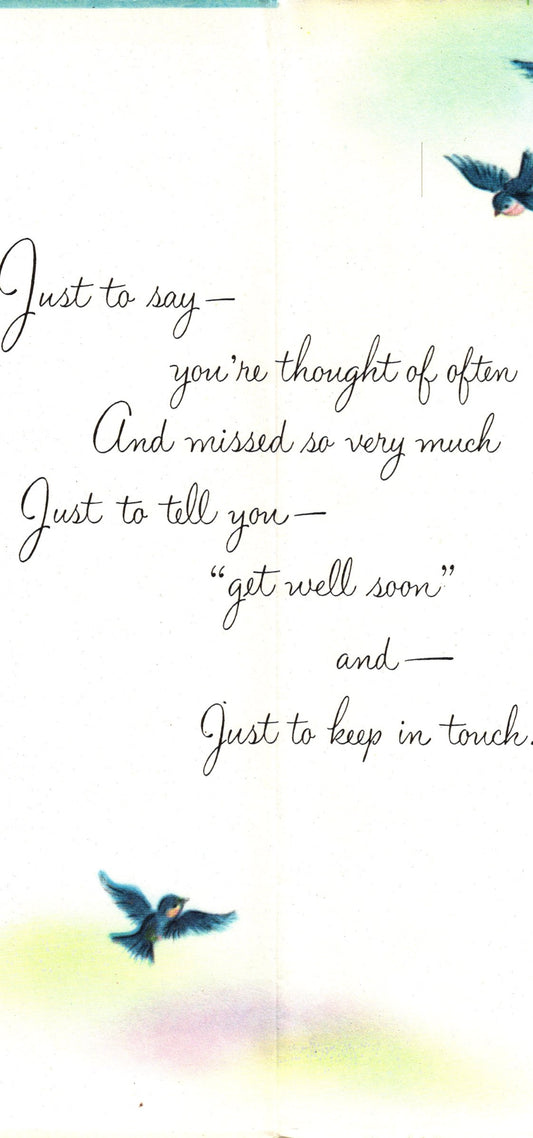 Just to say—
you're thought of often
And missed so very much
Just to tell you—
“get well soon”
and—
Just to keep in touch.